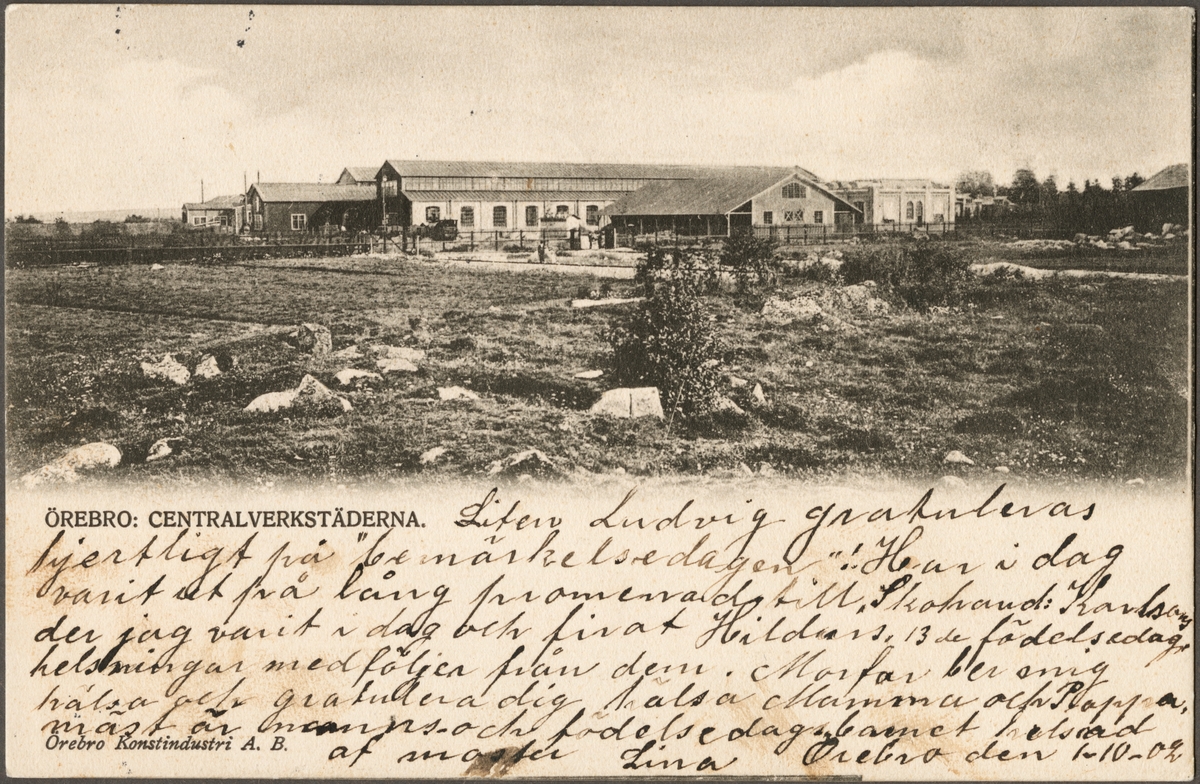 ÖREBRO: CENTRALVERKSTÄDERNA. Liten Ludvig gratuleras
hjertligt på "bemärkelsedagen"! Har i dag
varit ut på lång promenad, till Skohand: Karlsons
der jag varit i dag och firat Hildurs, 13 de födelsedag,
helsningar medföljer från dem. Morfar ber mig
hälsa och gratulera dig hälsa Mamma och Pappa,
mäst är namns- och födelsedagsbarnet helsad
Örebro Konstindustri A. B.
af moster Lina Örebro den 1-10-02